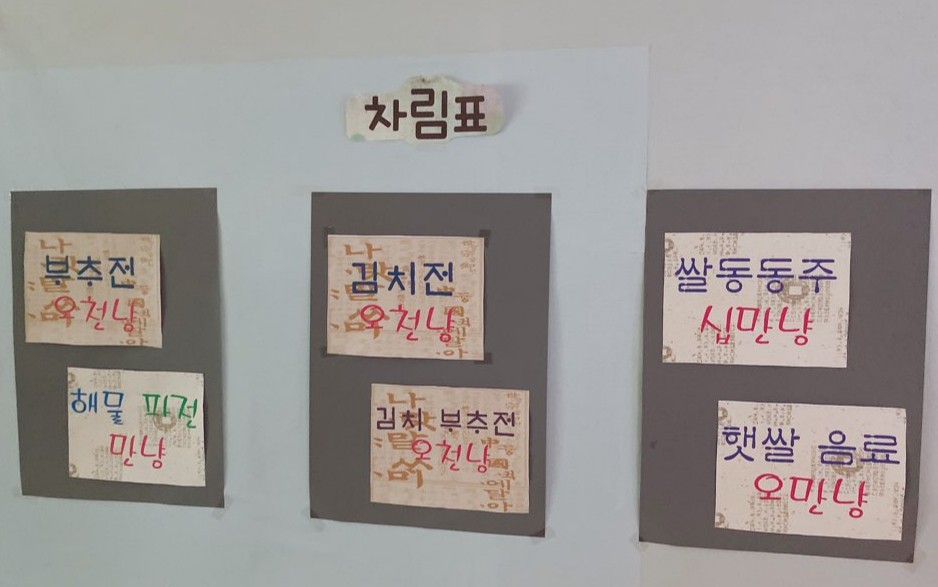 차림표
부추전
오천냥
해물 파전
만냥
김치전
오천냥
김치 부추전
오천냥
쌀동동주
십만냥
햇쌀 음료
오만냥